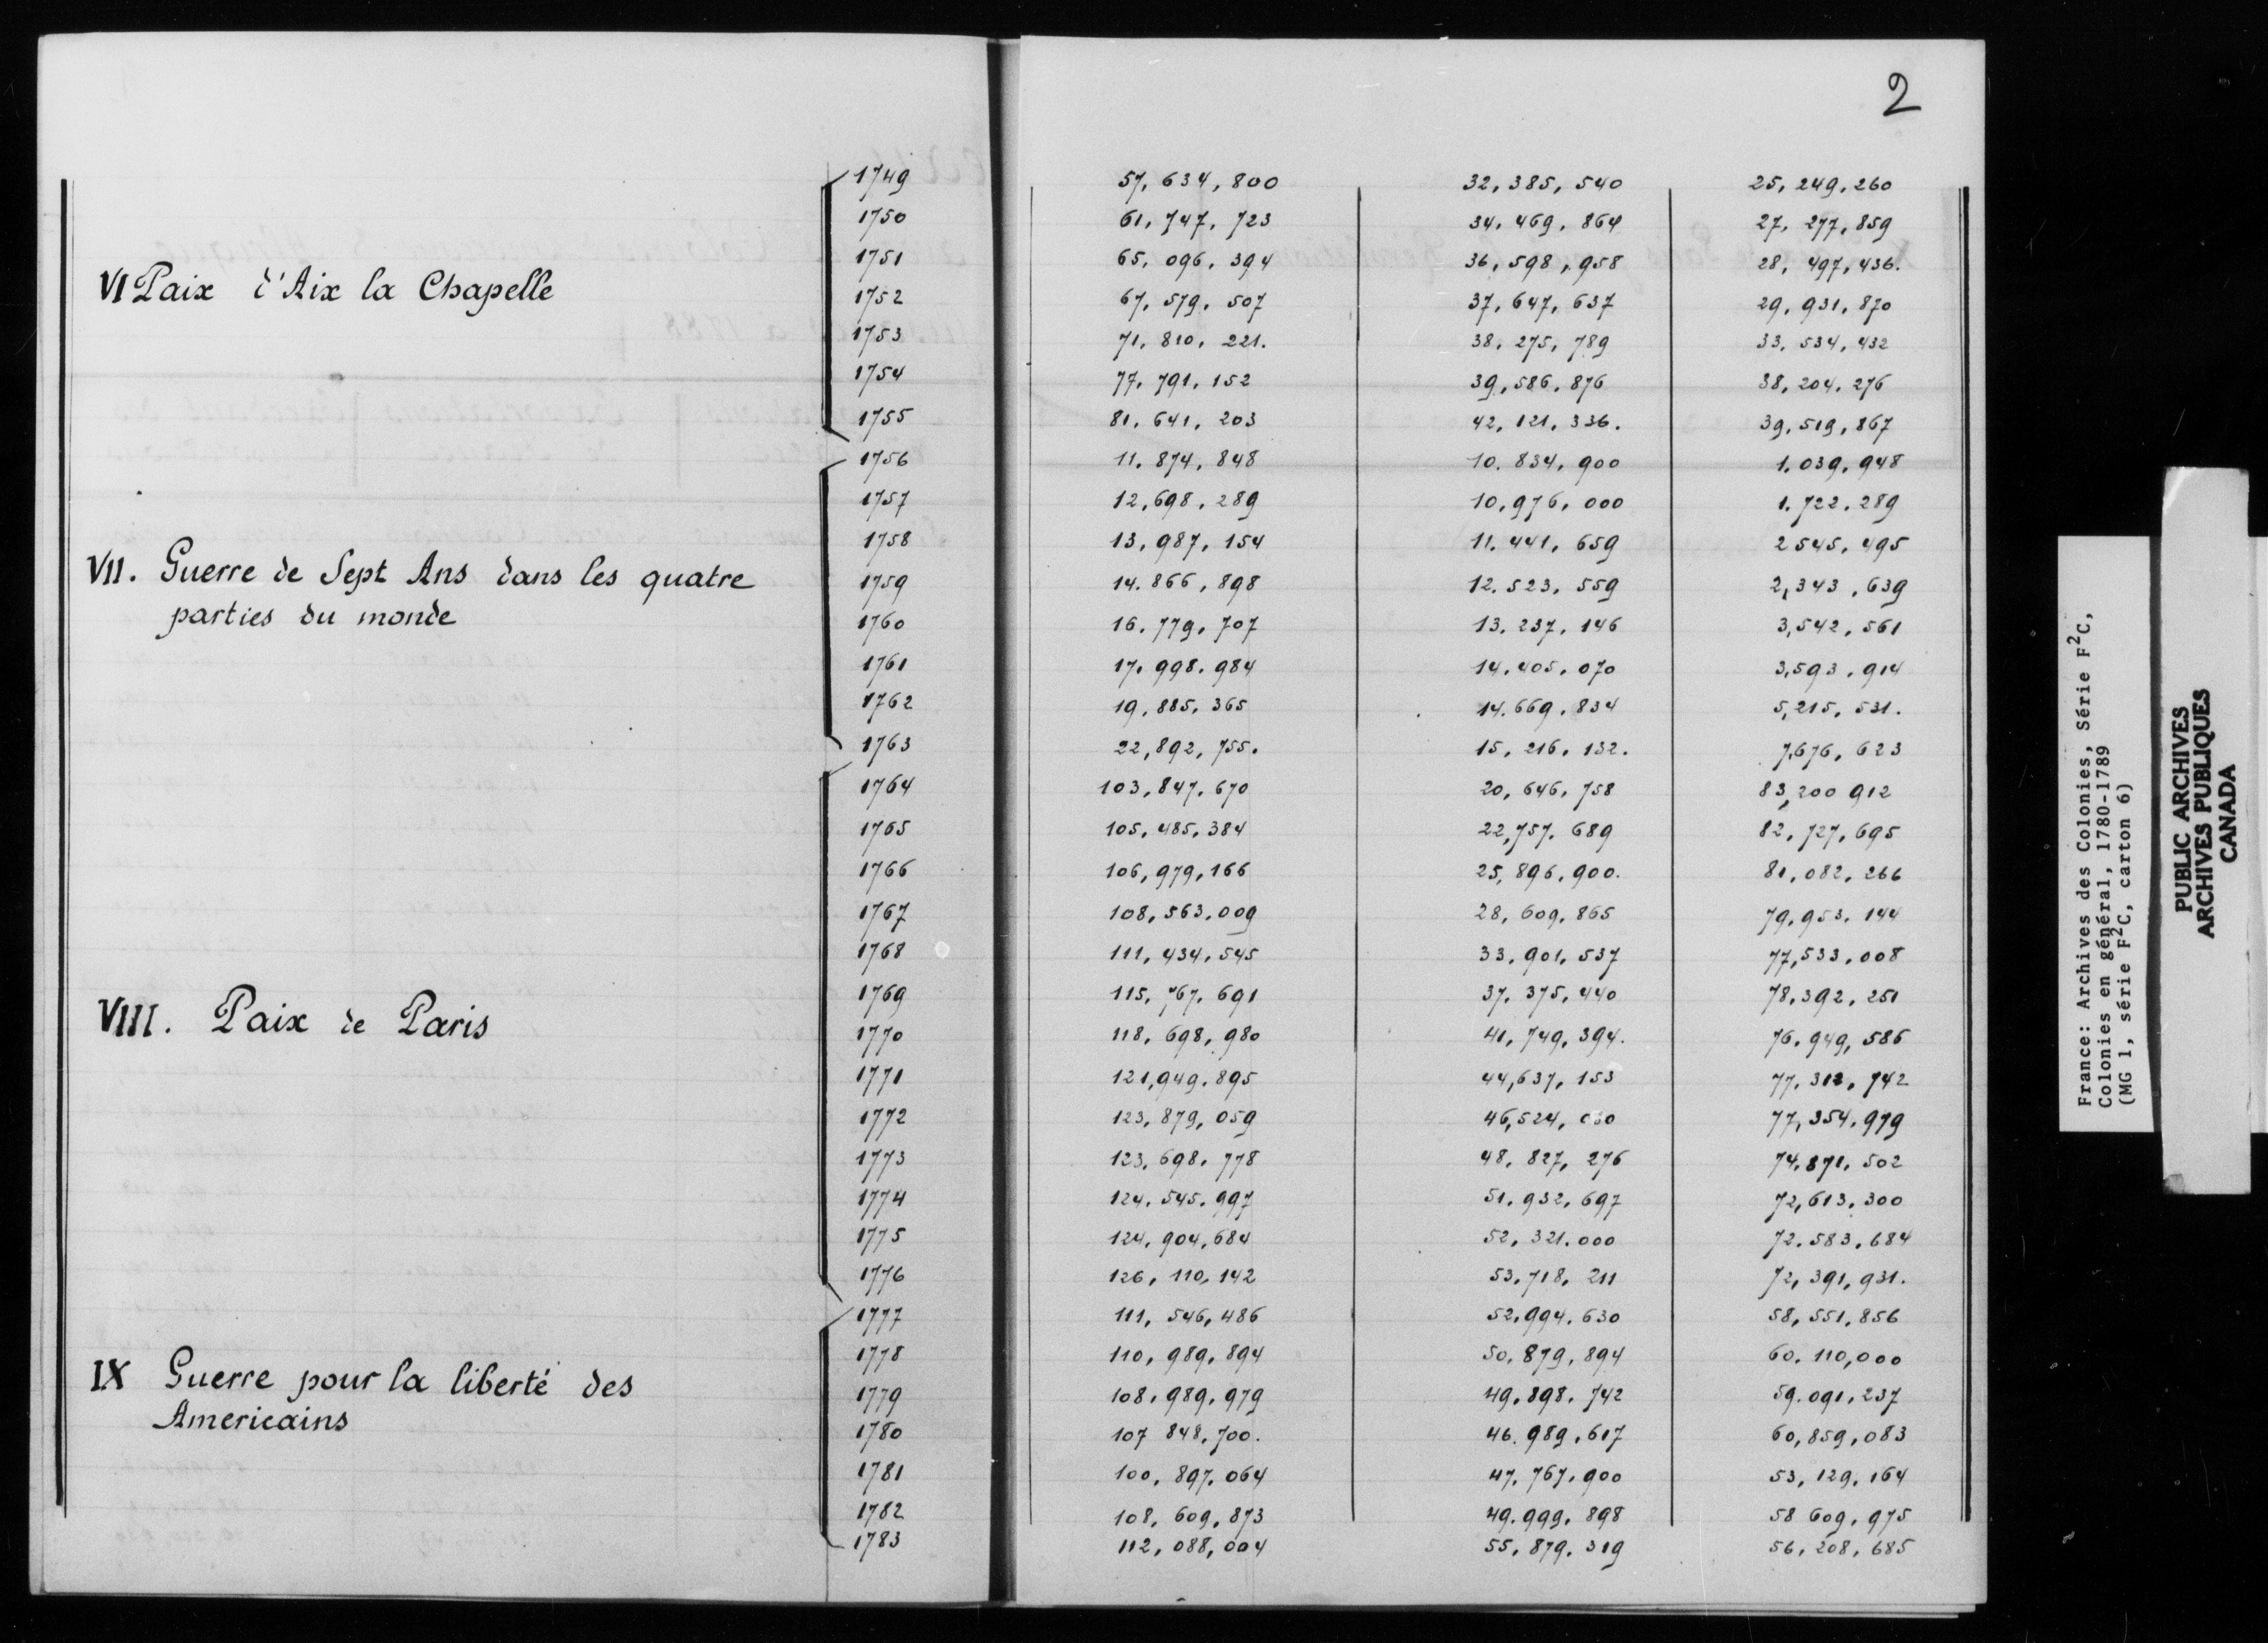 2
1749 57,634,800 32,385,540 25,249,260
1750 61,747,723 34,469,864 27,277,859
1751 65,096,394 36,598,958 28,497,436.
VI Paix d'Aix la Chapelle
1752 67,579,507 37,647,637 29,931,870
1753 71,810,221. 38,275,789 33,534,432
1754 77,791,152 39,586,876 38,204,276
1755 81,641,203 42,121,336. 39,519,867
1756 11.874,848 10.834,900 1.039,948
1757 12,698,289 10,976,000 1.722.289
1758 13,987,154 11.441,659 2545,495
VII. Guerre de Sept Ans dans les quatre
1759 14.866,898 12.523.559 2,343,639
parties du monde
1760 16.779,707 13.237.146 3,542,561
1761 17.998.984 14.405.070 3,593.914
1762 19,885,365 14.669.834 5,215,531.
1763 22,892,755. 15,216,132. 7,676,623
1764 103,847,670 20,646,758 83,200 912
1765 105,485,384 22,757.689 82,727,695
1766 106,979,166 25,896,900. 81,082,266
1767 108,563.009 28,609,865 79,953,144
1768 111,434,545 33,901,537 77,533,008
1769 115,767,691 37,375,440 78,392,251
VIII. Paix de Paris
1770 118,698,980 41,749,394. 76.949,586
1771 121,949.895 44,637,153 77.312,742
1772 123,879,059 46,524,080 77,354,979
1773 123,698,778 48,827,276 74,871,502
1774 124.545.997 51.932,697 72,613.300
1775 124,904,684 52,321.000 72.583,684
1776 126,110,142 53,718,211 72,391,931.
1777 111,546,486 52,994.630 58,551,856
1778 110,989,894 50,879,894 60.110,000
IX Guerre pour la liberté des
1779 108,989,979 49,898,742 59.091,237
Americains
1780 107 848,700. 46.989,617 60,859,083
1781 100,897.064 47,767,900 53,129,164
1782 108,609,873 49.999,898 58 609,975
1783 112,088,004 55,879,319 56,208,685
France: Archives des Colonies, Série F²C,
Colonies en général, 1780-1789
(MG 1, série F²C, carton 6)
PUBLIC ARCHIVES
ARCHIVES PUBLIQUES
CANADA